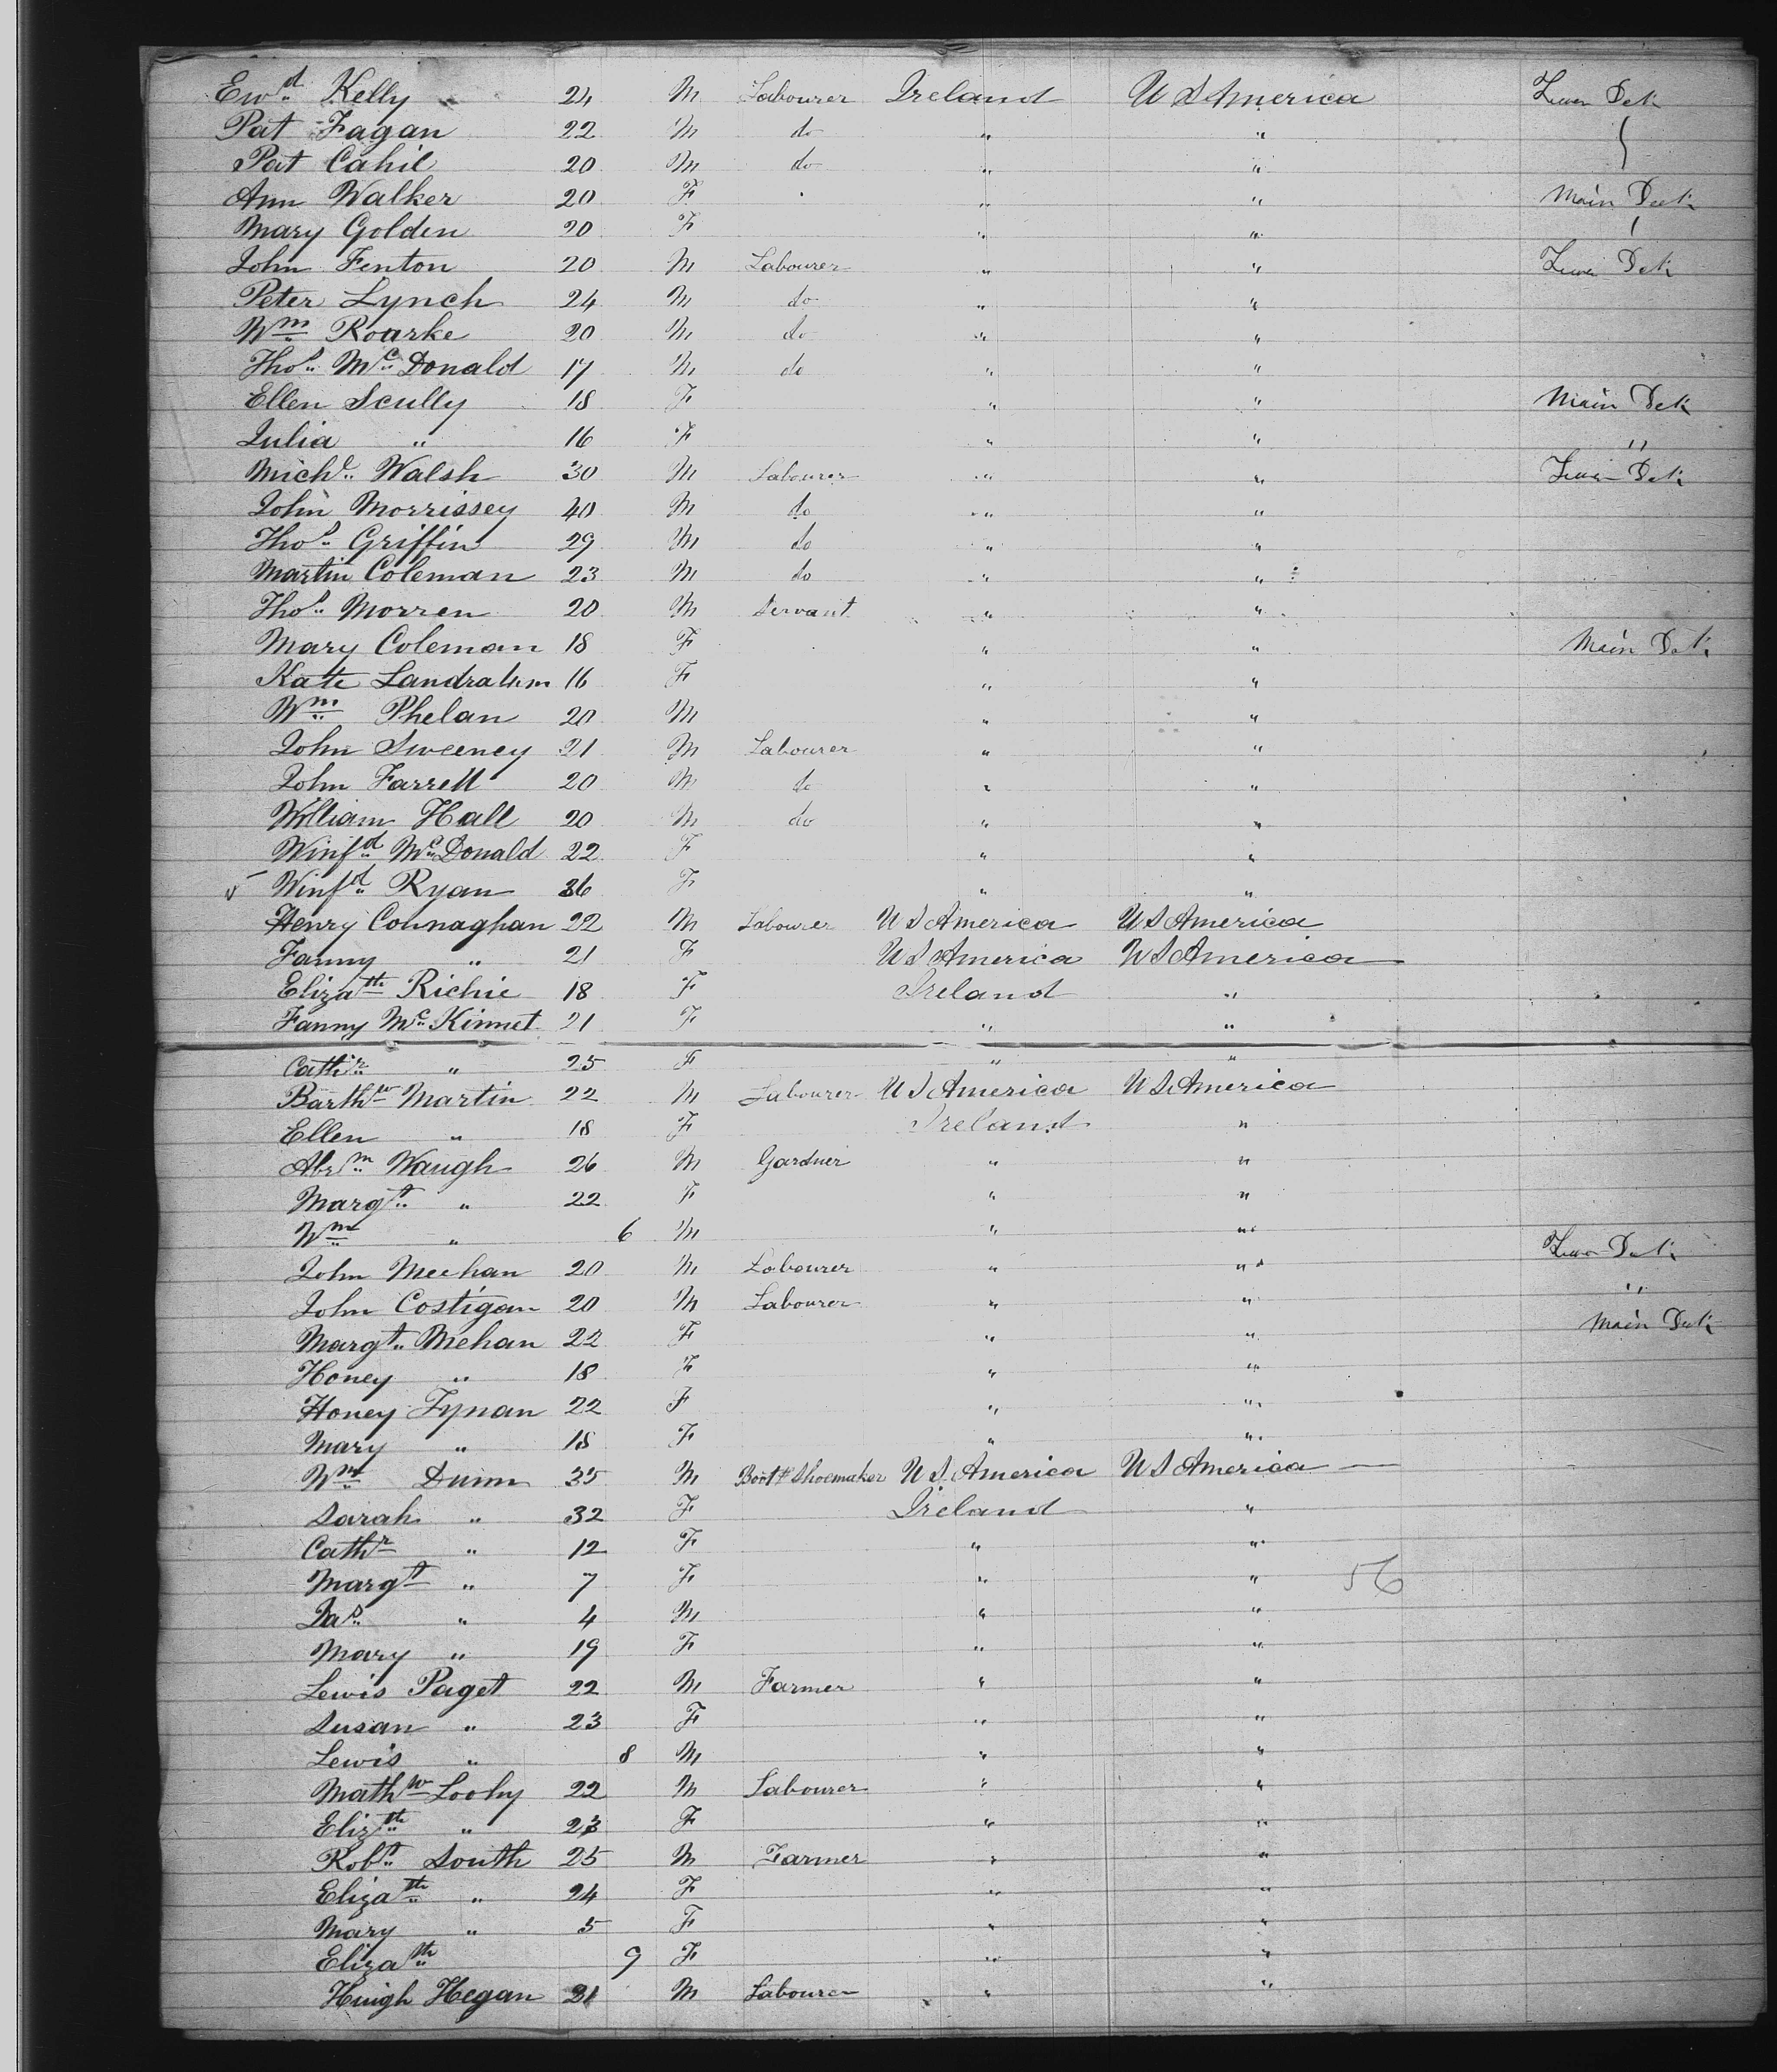 Ewd Kelly 24 M Labourer Ireland U S America Lower Dek
Pat Fagan 22 M do " "
Pat Cahil 20 M do " "
Ann Walker 20 F " " Main Deck
Mary Golden 20 F " "
John Fenton 20 M Labourer " " Lower Dek
Peter Lynch 24 M do " "
Wm Roarke 20 M do " "
Thos McDonald 17 M do " "
Ellen Scully 18 F " " Main Dek
Julia " 16 F " " "
Michl Walsh 30 M Labourer " " Lower Dek
John Morrissey 40 M do " "
Thos Griffin 29 M do " "
Martin Coleman 23 M do " "
Thos Morren 20 M Servant " "
Mary Coleman 18 F " " Main Dek
Kate 16 F " "
Wm Phelan 20 M " "
John Sweeney 21 M Labourer " "
John Farrell 20 M do " "
William Hall 20 M do " "
Winfd McDonald 22 F " "
Winfd Ryan 36 F " "
Henry Connaghan 22 M Labourer U S America U S America
Fanny " 21 F U S America U S America
Elizath Richie 18 F Ireland "
Fanny McKinnet 21 F " "
Cathr " 25 F " "
Barthw Martin 22 M Labourer U S America U S America
Ellen " 18 F Ireland "
Abrm Waugh 26 M Gardner " "
Margt " 22 F " "
Wm " 6 M " "
John Meehan 20 M Labourer " " Lower Dek
John Costigan 20 M Labourer " " "
Margt Mehan 22 F " " Main Dek
Honey " 18 F " "
Honey Tynan 22 F " "
Mary " 18 F " "
Wm Dunn 35 M Boot & Shoemaker U S America U S America
Sarah " 32 F Ireland "
Cathr " 12 F " "
Margt " 7 F " " 56
Jas " 4 M " "
Mary " 19 F " "
Lewis Paget 22 M Farmer " "
Susan " 23 F " "
Lewis " 8 M " "
Mathw Looby 22 M Labourer " "
Elizth " 23 F " "
Robt South 25 M Farmer " "
Elizath " 24 F " "
Mary " 5 F " "
Elizath 9 F " "
Hugh Hegan 21 M Labourer " "